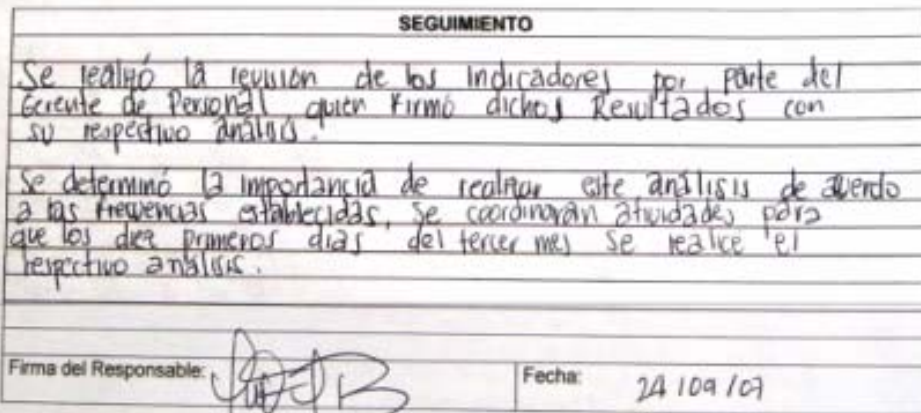 SEGUIMIENTO
Se realizó la revisión de los Indicadores por parte del
Gerente de Personal quien Firmó dichos Resultados con
su respectivo análisis.
Se determinó la importancia de realizar este análisis de acuerdo
a las frecuencias establecidas, se coordinarán atividades para
que los diez primeros dias del tercer mes se realice el
respectivo análisis.
Firma del Responsable:
Fecha: 24/09/07